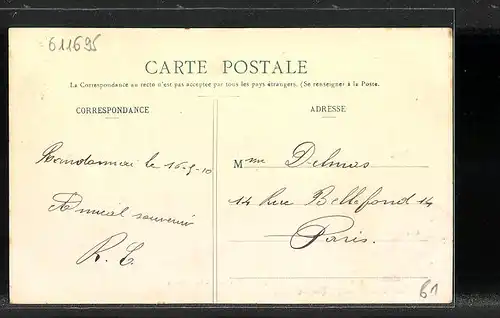 611695
CARTE POSTALE
La Correspondance au recto n'est pas acceptée par tous les pays étrangers. (Se renseigner à la Poste.
CORRESPONDANCE
ADRESSE
le 16-9-10
Amical souvenir
R. C.
Mme Delmas
14 Rue Bellefond 14
Paris.
61